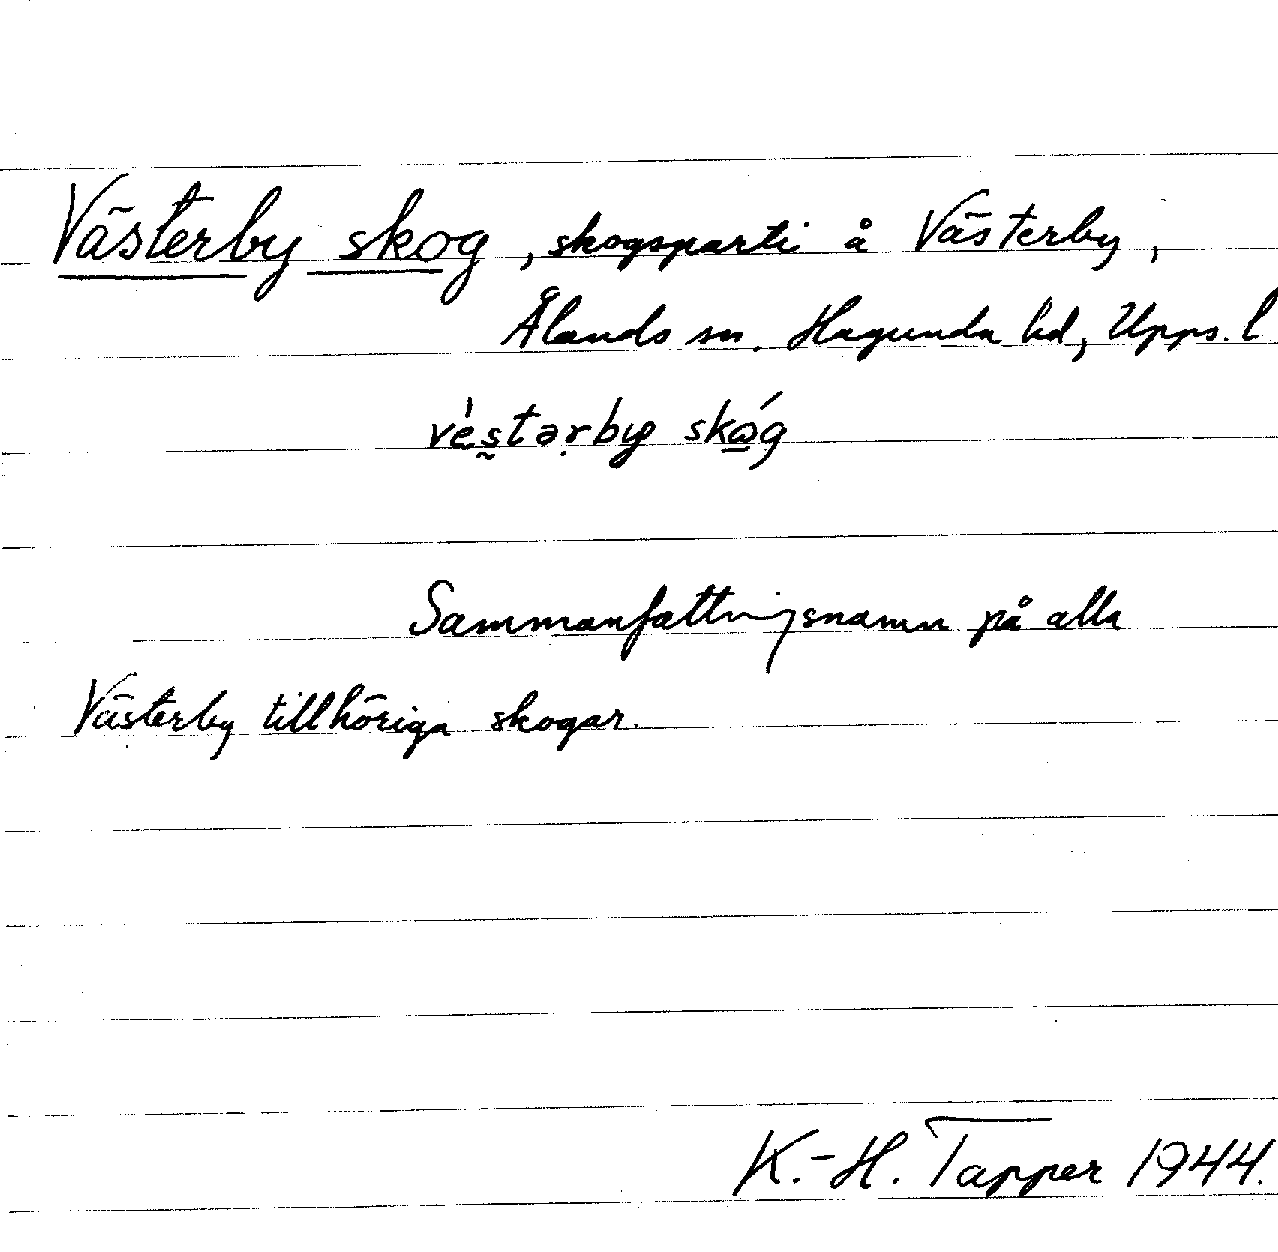 Västerby skog, skogsparti å Västerby,
Ålands sn. Hagunda hd, Upps. l
vèstərby skóg
Sammanfattningsnamn på alla
Västerby tillhöriga skogar.
K.-H. Tapper 1944.